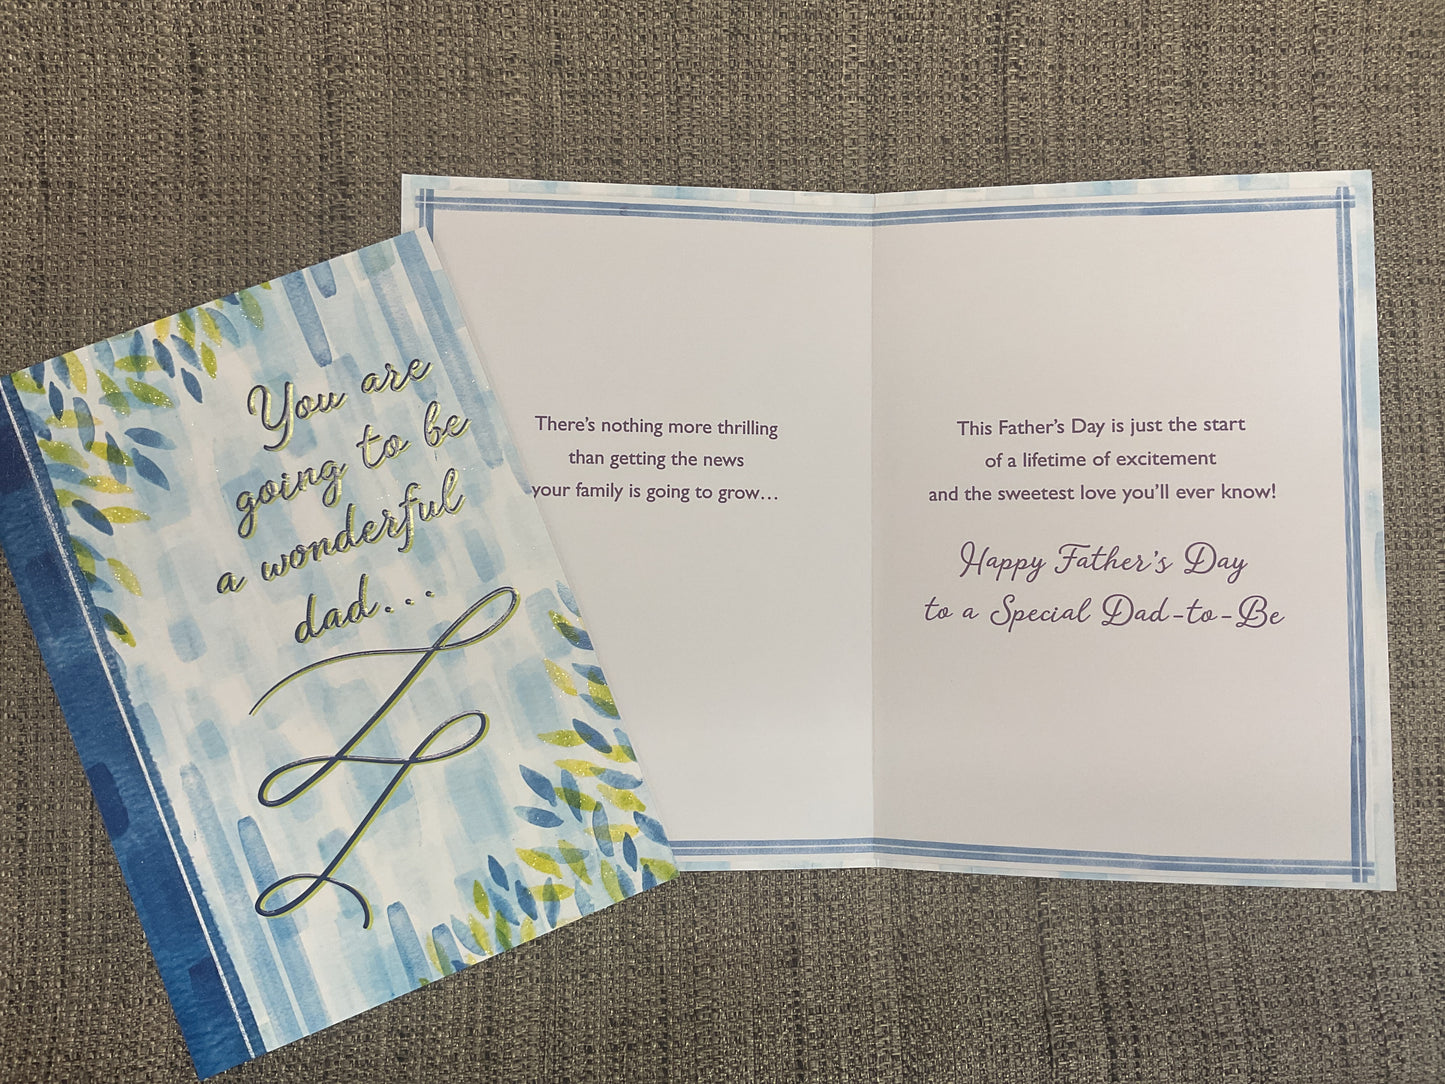 You are
going to be
a wonderful
dad...
There's nothing more thrilling
than getting the news
your family is going to grow...
This Father's Day is just the start
of a lifetime of excitement
and the sweetest love you'll ever know!
Happy Father's Day
to a Special Dad-to-Be